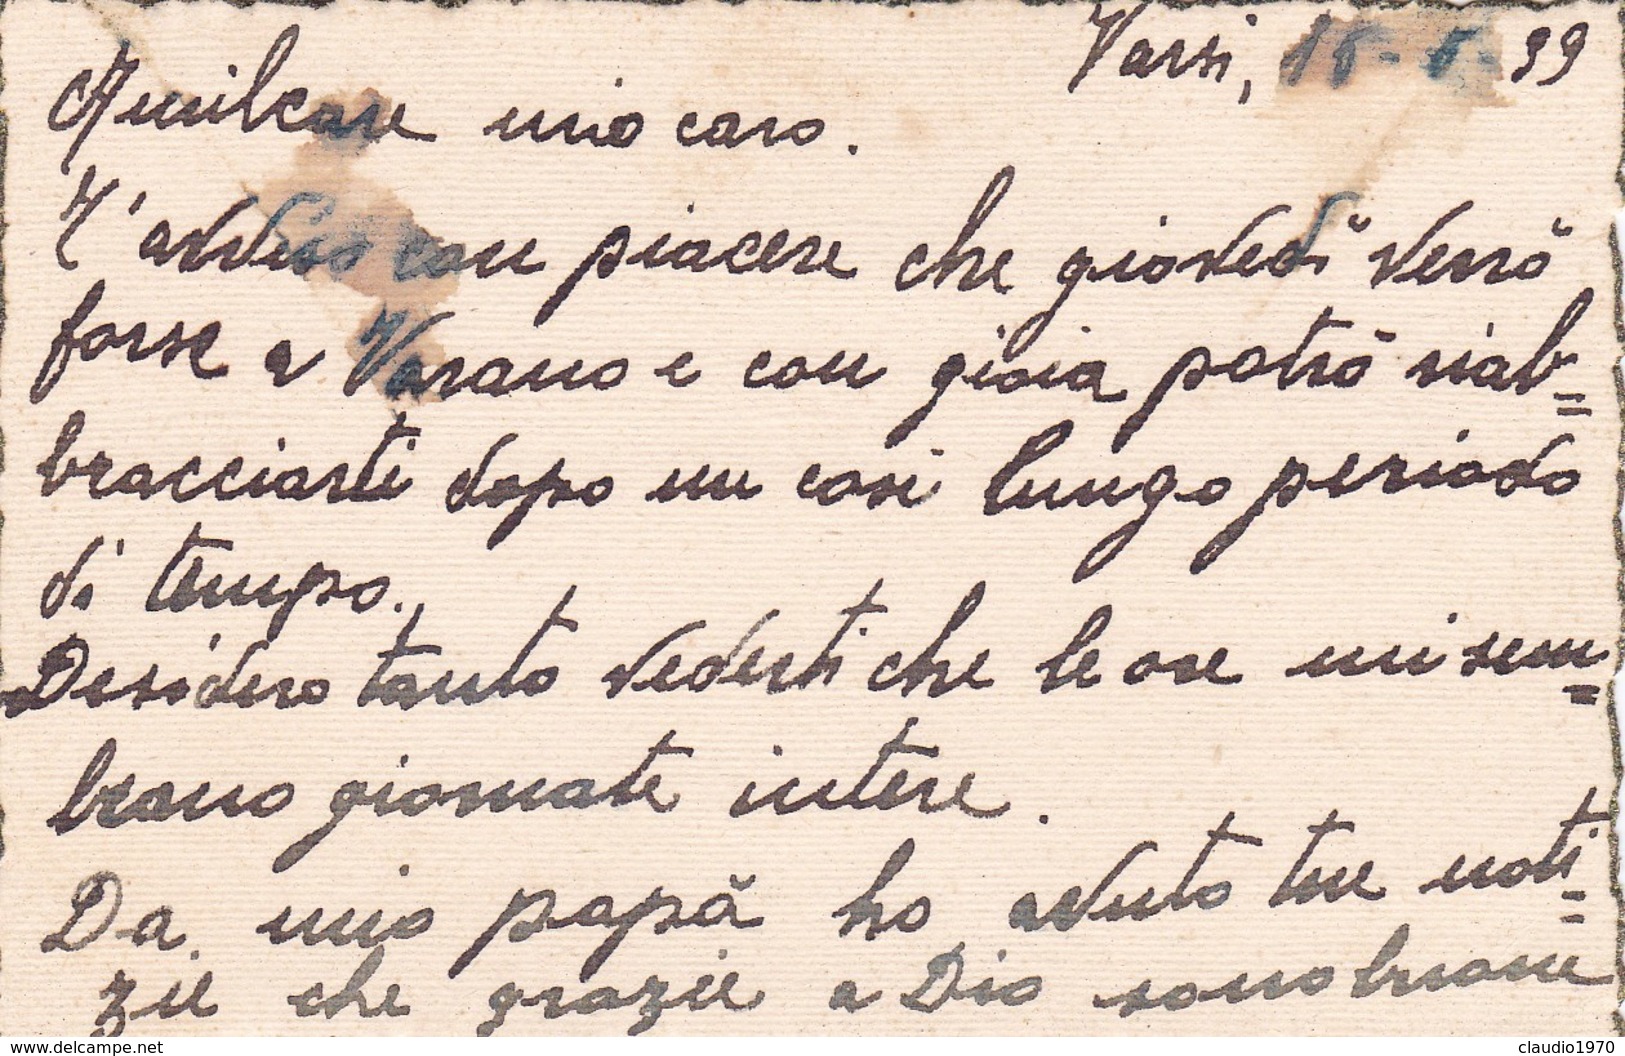 Varsi, 18-8-39
Amilcare mio caro.
T'avviso con piacere che giovedì verrò
forse a Varano e con gioia potrò riab=
bracciarti dopo un così lungo periodo
di tempo.
Desidero tanto vederti che le ore mi sem=
brano giornate intere.
Da mio papà ho avuto tue noti=
zie che grazie a Dio sono buone
delcampe.net
claudio1970